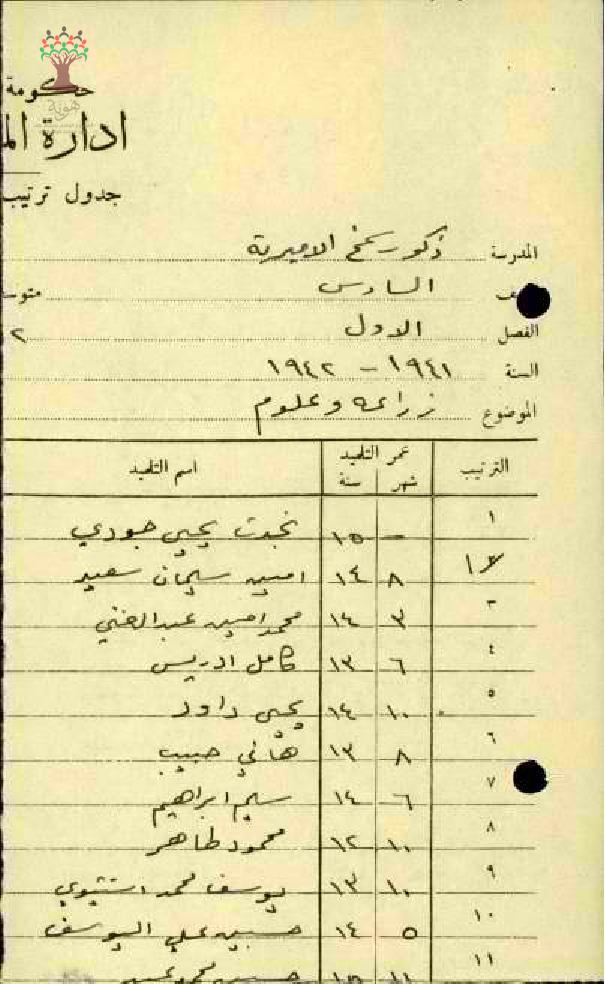 هوية
حكومة
ادارة الم
جدول ترتيب
المدرسة ذكور سمخ الاميرية
السادس متوس
الفصل الاول ٢
السنة ١٩٤١ – ١٩٤٢
الموضوع زراعه وعلوم
الترتيب عمر التلميذ اسم التلميذ
شهر سنة
١ — ١٥ نجدت يحيى جودي
٨ ١٤ امين سليمان سعيد
٣ ٣ ١٤ محمد امين عبد الغني
٤ ٦ ١٣ كامل ادريس
٥ ١٠ ١٤ يحيى داود
٦ ٨ ١٣ هاني حبيب
٧ ٦ ١٤ سليم ابراهيم
٨ ١٠ ١٢ محمود طاهر
٩ ١٠ ١٣ يوسف محمد اشتيوي
١٠ ٥ ١٤ حسين علي اليوسف
١١ ١١ ١٥ حسين محمد